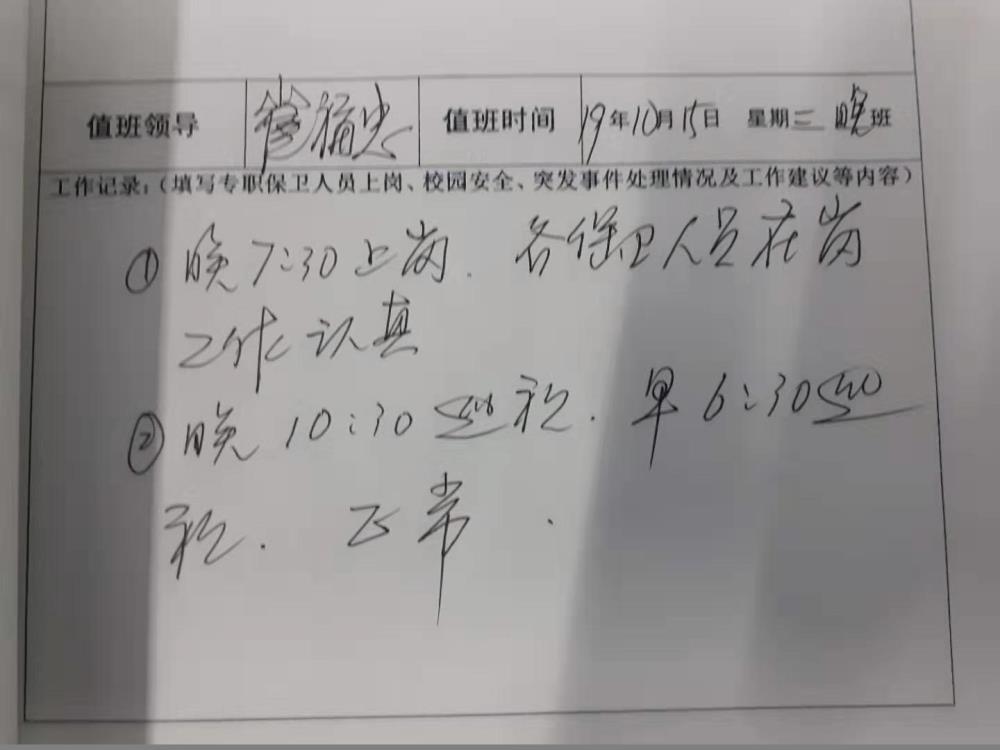 值班领导 值班时间 19年10月15日 星期三 晚班
工作记录：（填写专职保卫人员上岗、校园安全、突发事件处理情况及工作建议等内容）
① 晚7:30上岗．各保卫人员在岗
工作认真
② 晚10:30巡视．早6:30巡
视．正常．